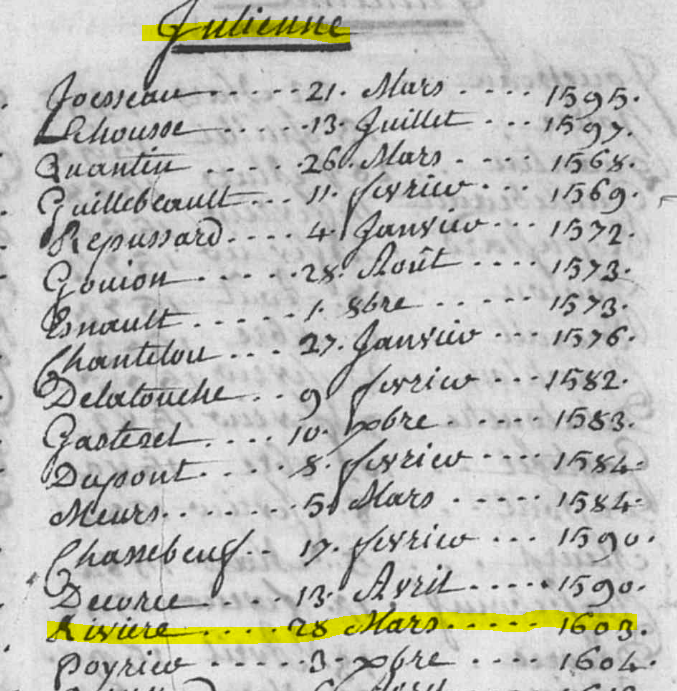 Julienne
Jousseau ..... 21. Mars .... 1595.
Lehousse ..... 13. Juillet ... 1597.
Quantin ..... 26. Mars .... 1568.
Guillebeault ... 11. fevrier ... 1569.
Repussard .... 4. Janvier ... 1572.
Gouion ..... 28. Août .... 1573.
Esnault ..... 1. 8bre ..... 1573.
Chantelou ... 27. Janvier ... 1576.
Delatouche ... 9 fevrier ... 1582.
Gasteset .... 10. xbre ..... 1583.
Dupont .... 8. fevrier .... 1584.
Meurs ..... 5. Mars ..... 1584.
Chassebeuf .. 17. fevrier ... 1590.
13. Avril .... 1590.
Riviere .... 28 Mars .... 1603.
Poyrier .... 3. xbre .... 1604.